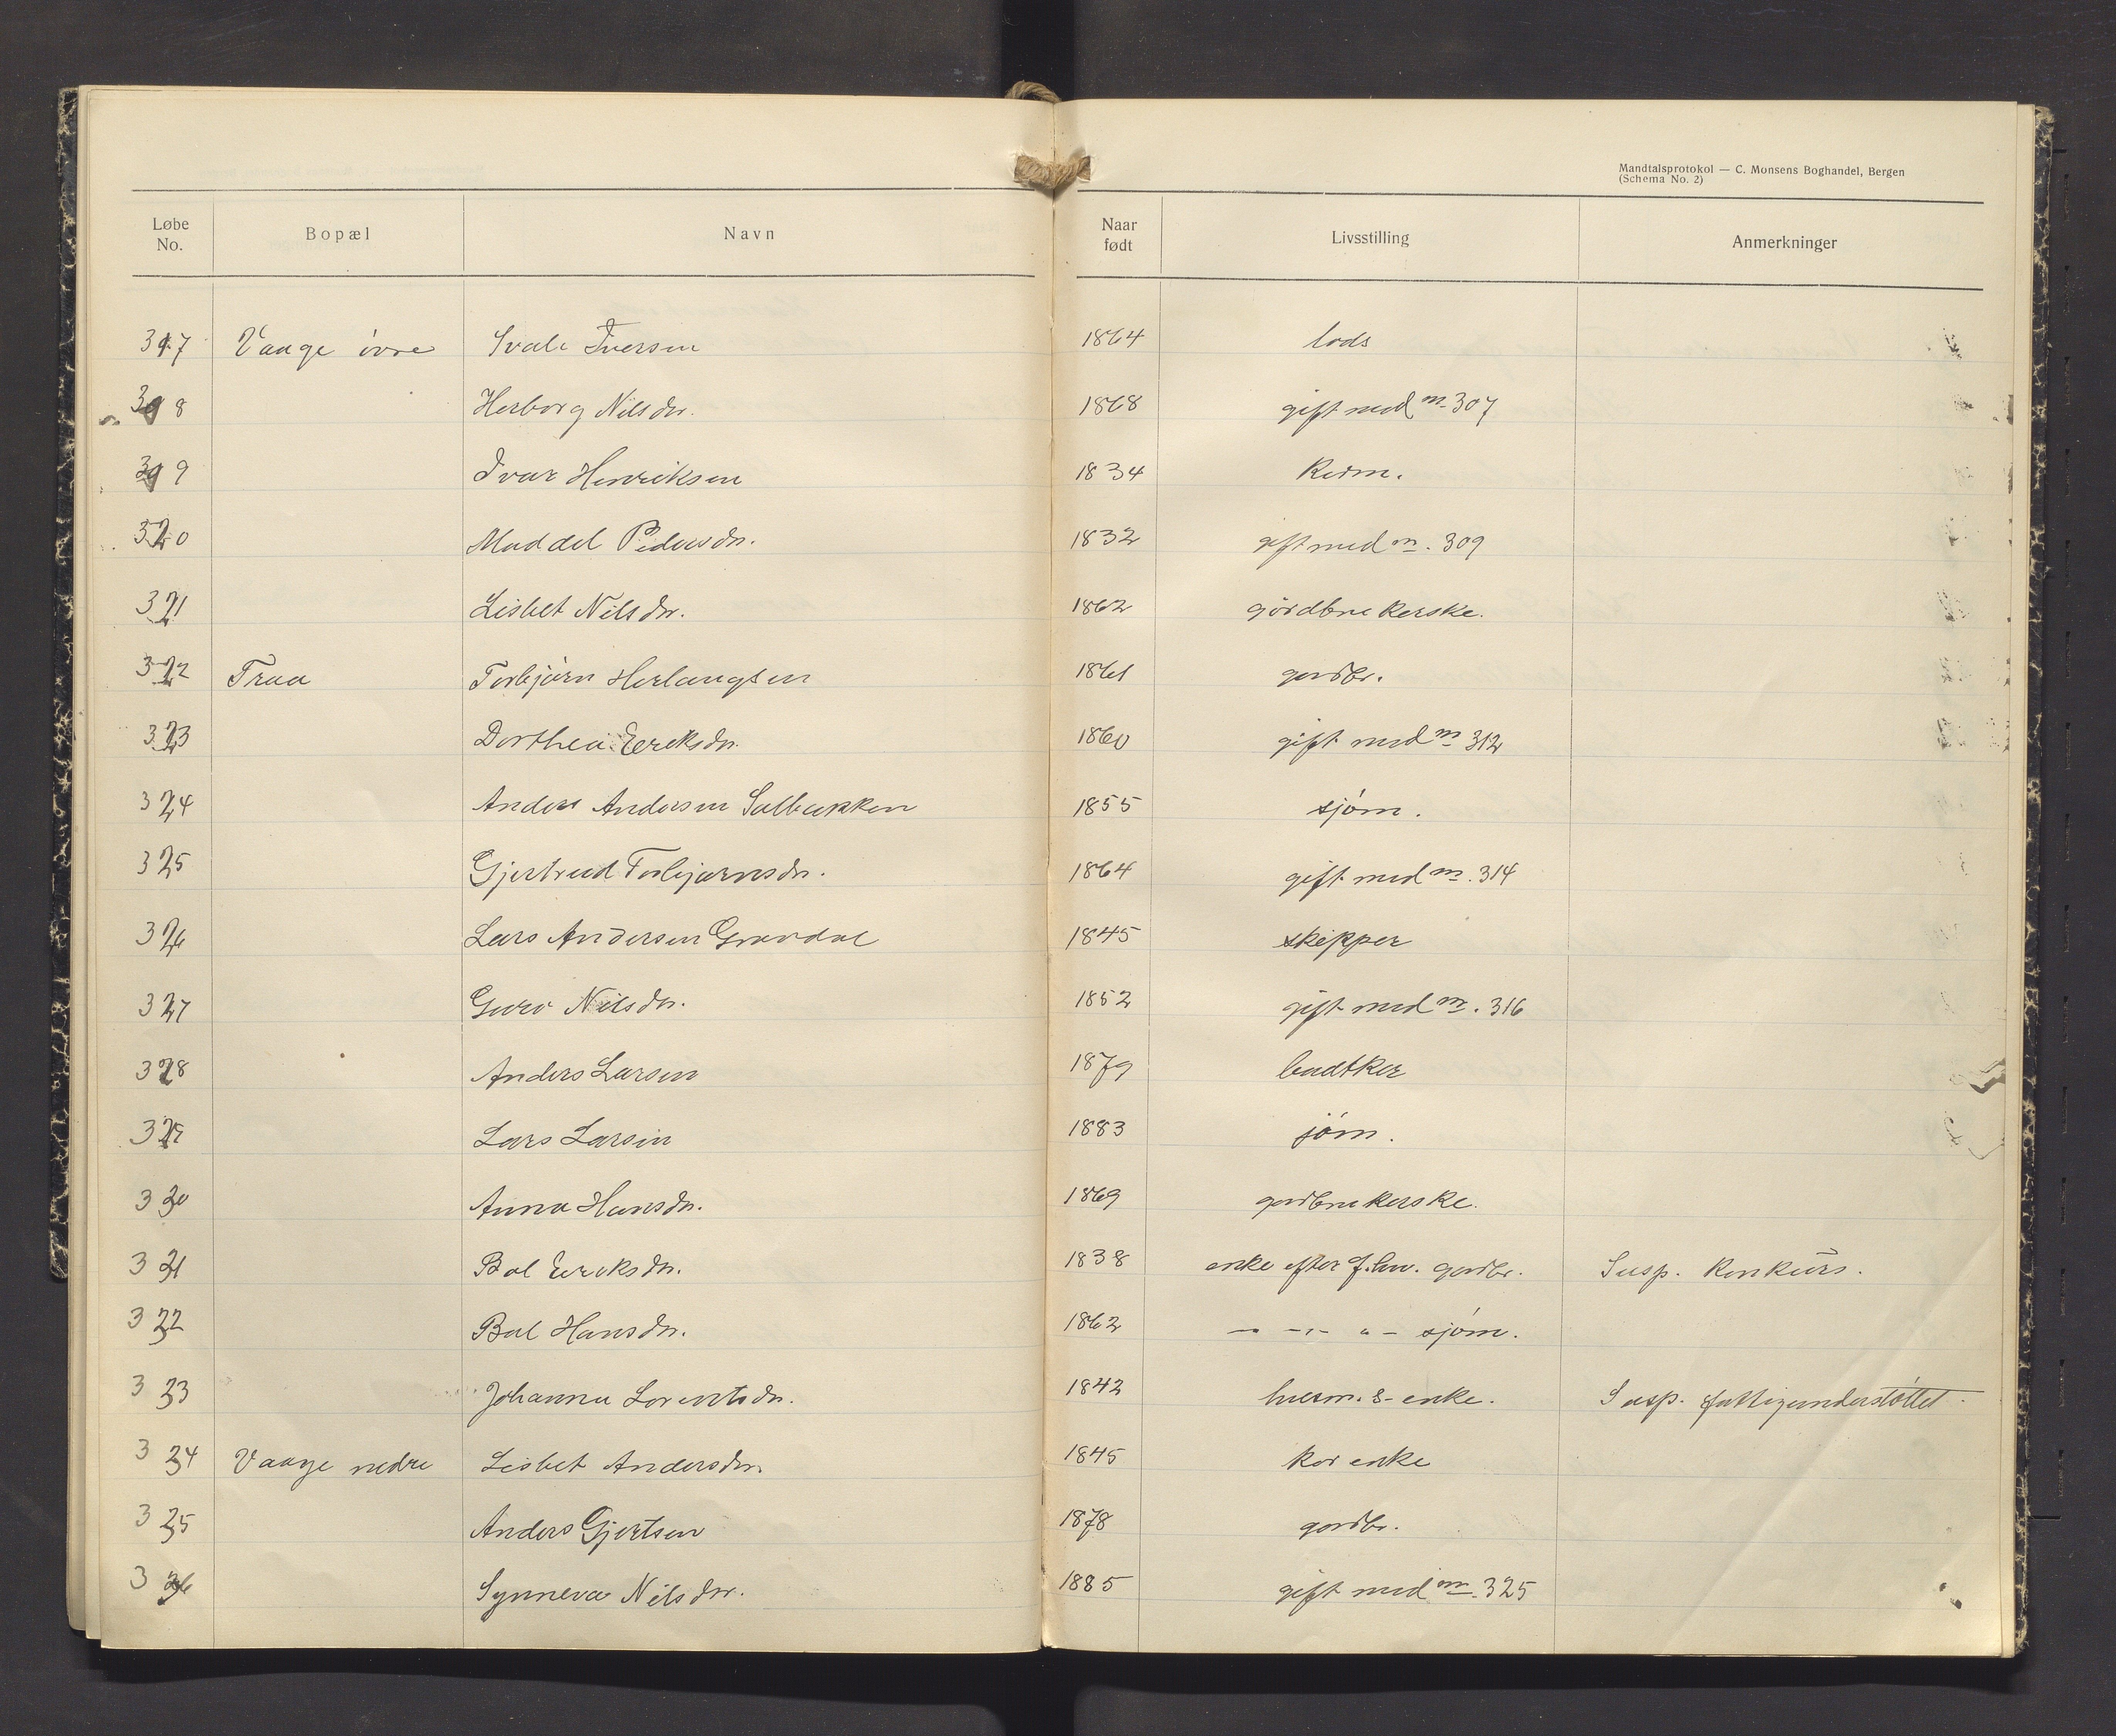 Mandtalsprotokol — C. Monsens Boghandel, Bergen
(Schema No. 2)
Løbe No. Bopæl Navn Naar født Livsstilling Anmerkninger
317 Vaage övre Svale Iversen 1864 lods
318 Herborg Nilsdr. 1868 gift med no 307
319 Ivar Henriksen 1834 Kaarm.
320 Maddel Pedersdr. 1832 gift med no. 309
321 Lisbet Nilsdr. 1862 gårdbrukerske.
322 Traa Torbjörn Herlaugsen 1861 gardbr.
323 Dorthea Eriksdr. 1860 gift med no 312
324 Anders Andersen Salbakken 1855 sjöm.
325 Gjertrud Torbjørnsdr. 1864 gift med no. 314
326 Lars Andersen Gravdal 1845 skipper
327 Guro Nilsdr. 1852 gift med no. 316
328 Anders Larsen 1879 bødtker
329 Lars Larsen 1883 jöm.
330 Anna Hansdr. 1869 gardbrukerske.
331 Bol Eriksdr. 1838 enke efter f.hv. gardbr. Susp. Konkurs.
332 Bol Hansdr. 1862 — -"- " - sjöm.
333 Johanna Lorentsdr. 1842 husm.s-enke. Susp. fattigunderstöttet.
334 Vaage nedre Lisbet Andersdr. 1845 kår enke
335 Anders Gjertsen 1878 gardbr.
336 Synneva Nilsdr. 1885 gift med no. 325